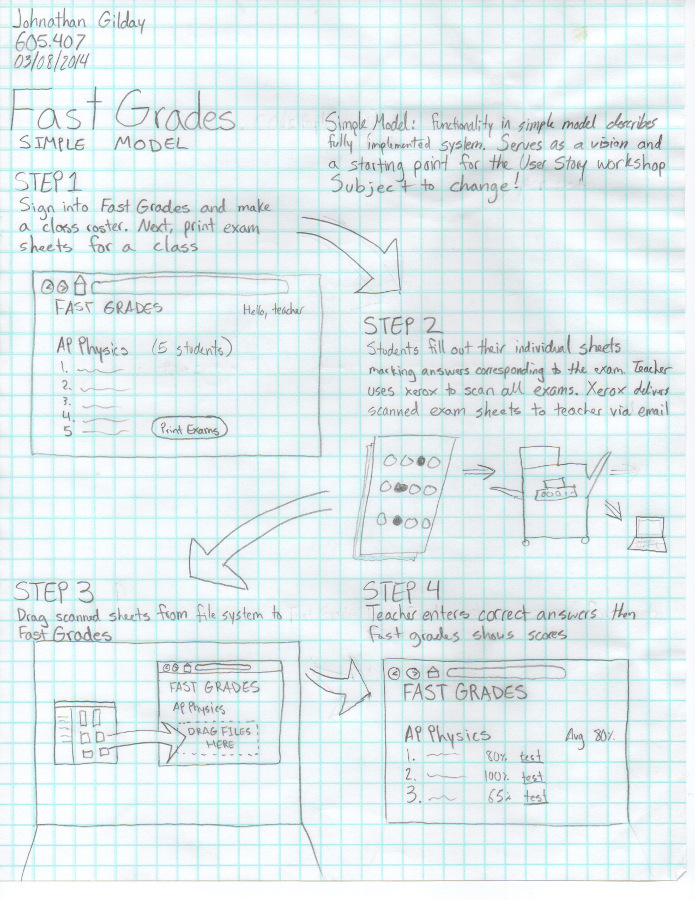 Johnathan Gilday
605.407
03/08/2014
Fast Grades
SIMPLE MODEL
Simple Model: Functionality in simple model describes
fully implemented system. Serves as a vision and
a starting point for the User Story workshop
Subject to change!
STEP 1
Sign into Fast Grades and make
a class roster. Next, print exam
sheets for a class
FAST GRADES
Hello, teacher
AP Physics (5 students)
1.
2.
3.
4.
5
Print Exams
STEP 2
Students fill out their individual sheets
marking answers corresponding to the exam. Teacher
uses xerox to scan all exams. Xerox delivers
scanned exam sheets to teacher via email
STEP 3
Drag scanned sheets from file system to
Fast Grades
FAST GRADES
AP Physics
DRAG FILES
HERE
STEP 4
Teacher enters correct answers then
fast grades shows scores
FAST GRADES
AP Physics Avg 80%
1. 80% test
2. 100% test
3. 65% test